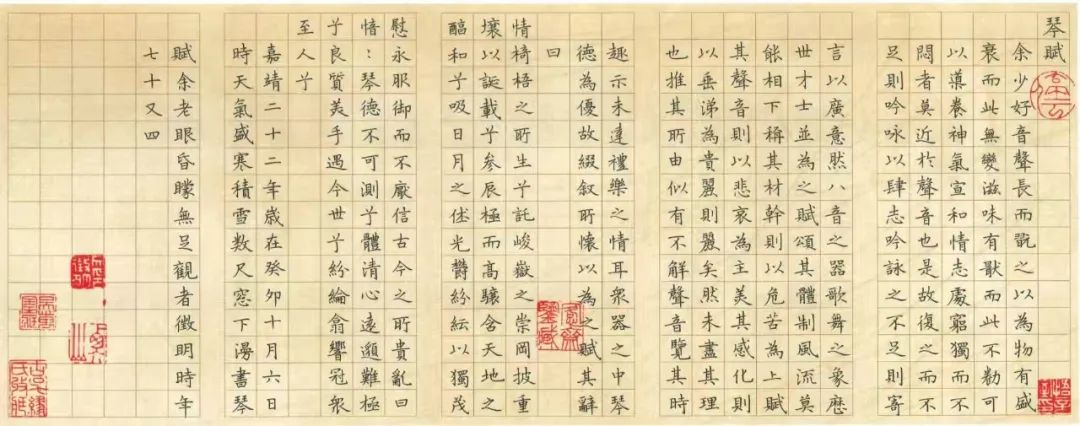 琴賦
余少好音聲長而翫之以為物有盛
衰而此無變滋味有猒而此不勌可
以導養神氣宣和情志處窮獨而不
悶者莫近於聲音也是故復之而不
足則吟咏以肆志吟詠之不足則寄
言以廣意然八音之器歌舞之象歷
世才士並為之賦頌其體制風流莫
能相下稱其材幹則以危苦為上賦
其聲音則以悲哀為主美其感化則
以垂涕為貴麗則麗矣然未盡其理
也推其所由似有不解聲音覽其時
趣示未達禮樂之情耳衆器之中琴
德為優故綴叙所懷以為之賦其辭
曰
情椅梧之所生兮託峻嶽之崇岡披重
壤以誕載兮參辰極而高驤含天地之
醕和兮吸日月之休光欝紛紜以獨茂
慰永服御而不厭信古今之所貴亂曰
愔:琴德不可測兮體清心遠邈難極
兮良質美手遇今世兮紛綸翕響冠衆
至人兮
嘉靖二十二年歲在癸卯十月六日
時天氣盛寒積雪数尺窓下湯書琴
賦余老眼昏矇無足觀者徵明時年
七十又四